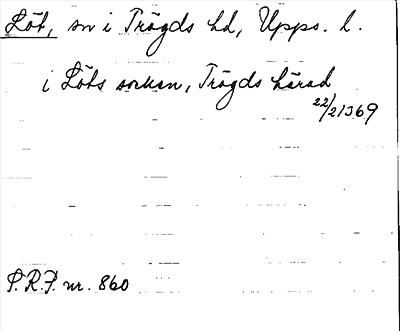 Löt, sn i Trögds hd, Upps. l.
i Löts socken, Trögds härad
22/2 1369
P.R.P. nr. 860